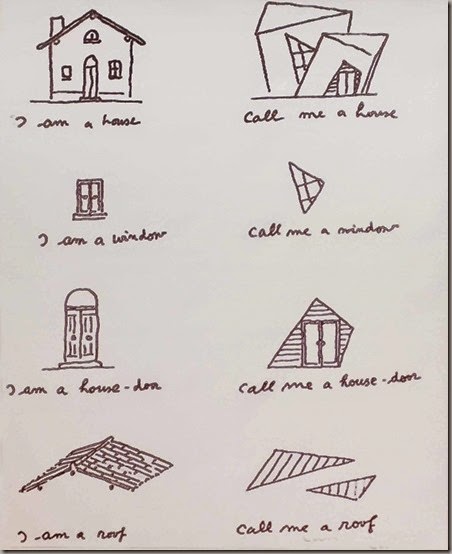 I am a house
Call me a house
I am a window
Call me a window
I am a house-door
Call me a house-door
I am a roof
Call me a roof